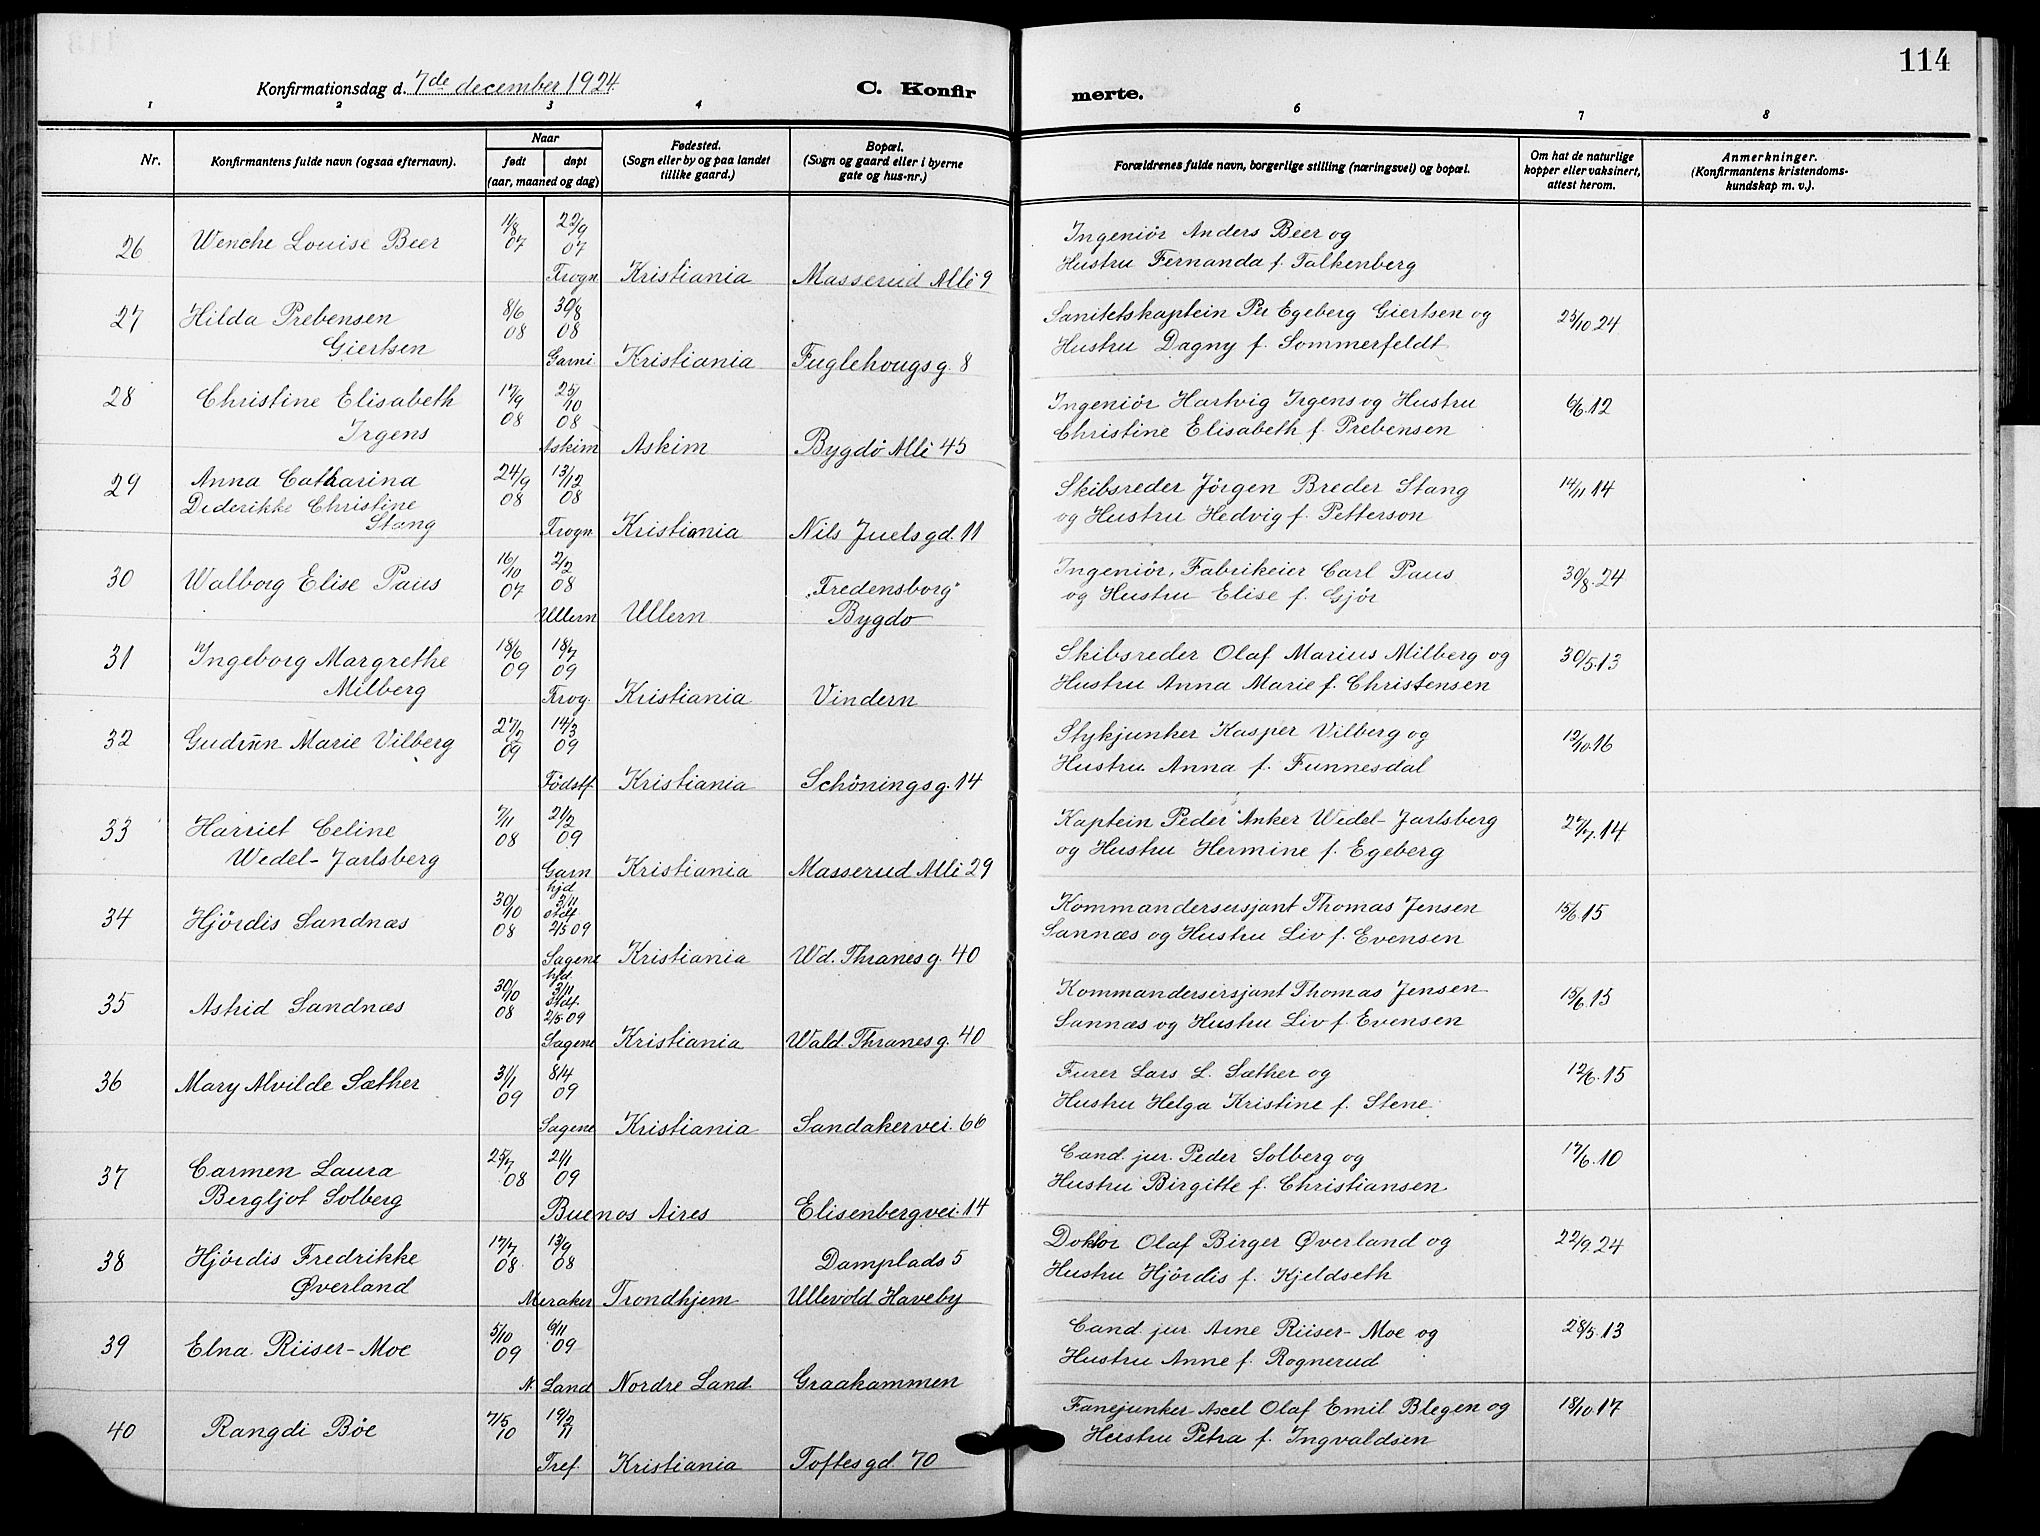 114
Konfirmationsdag d. 7de december 1924
C. Konfir
merte.
1 2 3 4 5 6 7 8
Nr.
Konfirmantens fulde navn (ogsaa efternavn).
Naar
født døpt
(aar, maaned og dag)
Fødested.
(Sogn eller by og paa landet
tillike gaard.)
Bopæl.
(Sogn og gaard eller i byerne
gate og hus-nr.)
Forældrenes fulde navn, borgerlige stilling (næringsvei) og bopæl.
Om hat de naturlige
kopper eller vaksinert,
attest herom.
Anmerkninger.
(Konfirmantens kristendoms-
kundskap m. v.).
26 Wenche Louise Beer 11/8 07 22/9 07
Frogn Kristiania Masserud Allé 9
Ingeniör Anders Beer og
Hustru Fernanda f. Falkenberg
27 Hilda Prebensen
Giertsen 8/6 08 30/8 08
Garni Kristiania Fuglehougs g. 8
Sanitetskaptein Per Egeberg Giertsen og
Hustru Dagny f. Sommerfeldt
23/10 24
28 Christine Elisabeth
Irgens 17/9 08 25/10 08
Askim Askim Bygdö Allé 45
Ingeniör Hartvig Irgens og Hustru
Christine Elisabeth f. Prebensen
6/6.12
29 Anna Catharina
Diderikke Christine
Stang 24/9 08 13/12 08
Frogn Kristiania Nils Juels gd. 11
Skibsreder Jörgen Breder Stang
og Hustru Hedvig f. Petterson
14/11 14
30 Walborg Elise Paus 16/10 07 2/2 08
Ullern Ullern „Fredensborg"
Bygdö
Ingeniör, Fabrikeier Carl Paus
og Hustru Elise f. Gjör
30/8.24
31 Ingeborg Margrethe
Milberg 18/6 09 18/7 09
Frog. Kristiania Vindern
Skibsreder Olaf Marius Milberg og
Hustru Anna Marie f. Christensen
30/5.13
32 Gudrun Marie Vilberg 27/2 09 14/3 09
Födstf. Kristiania Schönings g. 14
Stykjunker Kasper Vilberg og
Hustru Anna f. Funnesdal
12/10.16
33 Harriet Celine
Wedel-Jarlsberg 7/11 08 21/2 09
Garn Kristiania Masserud Allé 29
Kaptein Peder Anker Wedel-Jarlsberg
og Hustru Hermine f. Egeberg
27/7.14
34 Hjördis Sandnæs 30/10 08 hjd 3/11 stdf 2/5 09
Sagene Kristiania Wd. Thranes g. 40
Kommandersersjant Thomas Jensen
Sannæs og Hustru Liv f. Evensen
15/6.15
35 Astrid Sandnæs 30/10 08 hjd. 3/11 stdf. 2/5.09
Sagene Kristiania Wald. Thranes g. 40
Kommandersersjant Thomas Jensen
Sannæs og Hustru Liv f. Evensen
15/6.15
36 Mary Alvilde Sæther 31/1 09 8/4 09
Sagene Kristiania Sandakervei. 66
Furer Lars L. Sæther og
Hustru Helga Kristine f. Stene
12/6.15
37 Carmen Laura
Bergljot Solberg 25/7 08 21/1 09
Buenos Aires Elisenbergvei. 14
Cand. jur. Peder Solberg og
Hustru Birgitte f. Christiansen
17/6.10
38 Hjördis Fredrikke
Øverland 17/7 08 13/9 08
Meraker Trondhjem Damplads 5
Ullevold Haveby
Doktor Olaf Birger Øverland og
Hustru Hjördis f. Kjeldseth
22/9.24
39 Elna Riiser-Moe 5/10 09 6/11 09
N. Land Nordre Land Graakammen
Cand. jur. Arne Riiser-Moe og
Hustru Anne f. Rognerud
28/5.13
40 Rangdi Böe 7/5 10 19/2 11
Tref. Kristiania Toftes gd. 70
Fanejunker Axel Olaf Emil Blegen og
Hustru Petra f. Ingvaldsen
18/10.17